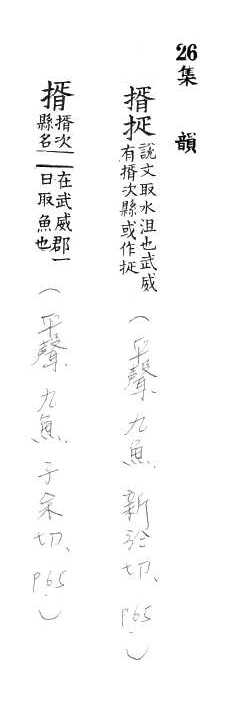 26集 韻
揟𢫿 說文取水沮也武威
有揟次縣或作𢫿
(平聲 九魚 新於切、P65.)
揟 揟次
縣名 在武威郡一
曰取魚也
(平聲 九魚 子余切、P.65.)